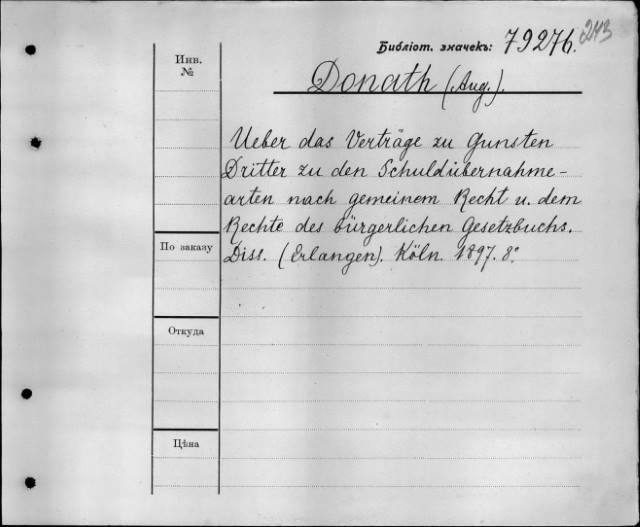 243
Библіот. значекъ: 79276.
Инв.
№
Donath (Aug.).
Ueber das Verträge zu Gunsten
Dritter zu den Schuldübernahme-
arten nach gemeinem Recht u. dem
Rechte des bürgerlichen Gesetzbuchs.
Diss. (Erlangen). Köln. 1897. 8°
По заказу
Откуда
Цѣна